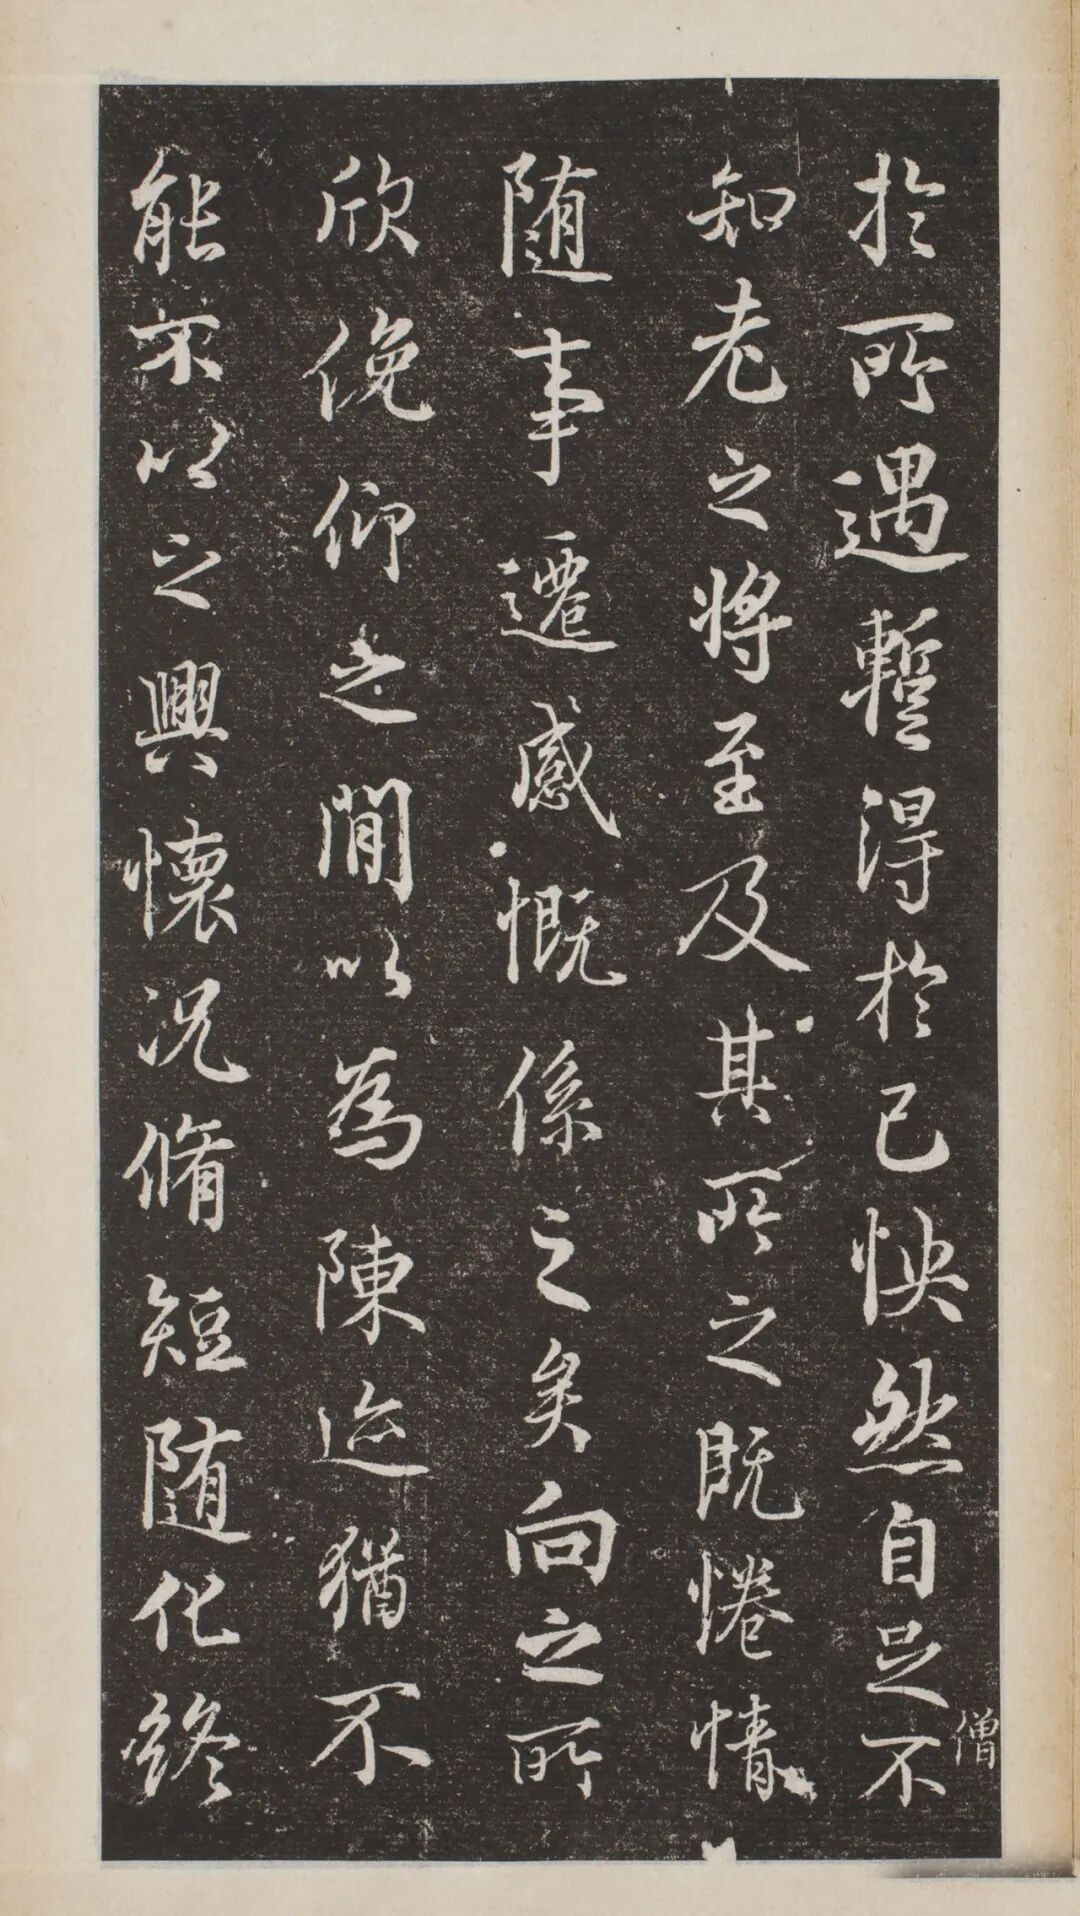 於所遇暫得於己怏然自足不
僧
知老之將至及其所之既惓情
随事遷感慨係之矣向之所
欣俛仰之閒以為陳迹猶不
能不以之興懷況脩短随化終